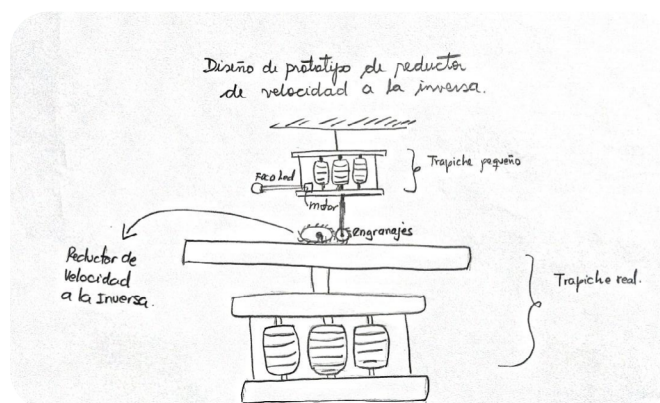 Diseño de prototipo de reductor
de velocidad a la inversa.
Trapiche pequeño
Foco Led
motor
engranajes
Reductor de
Velocidad
a la Inversa.
Trapiche real.